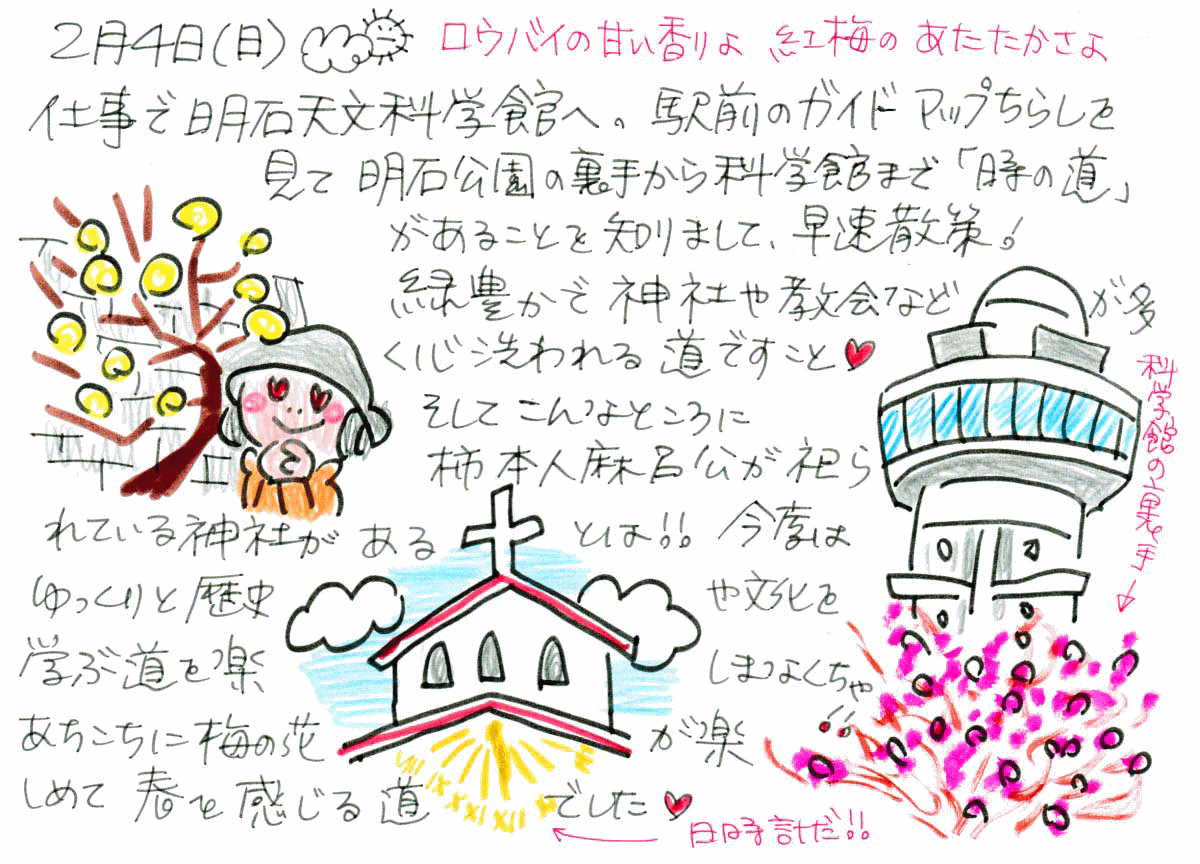 2月4日(日)
ロウバイの甘い香りよ 紅梅の あたたかさよ
仕事で明石天文科学館へ。駅前のガイドマップちらしを
見て 明石公園の裏手から科学館まで「時の道」
があることを知りまして、早速散策!
緑豊かで神社や教会などが多
く心洗われる道ですこと♥
そしてこんなところに
柿本人麻呂公が祀ら
れている神社がある とは!! 今度は
ゆっくりと歴史 や文化を
学ぶ道を楽 しまなくちゃ!!
あちこちに梅の花 が楽
しめて 春を感じる道 でした♥
科学館の裏手
IX XI XII
日時計だ!!